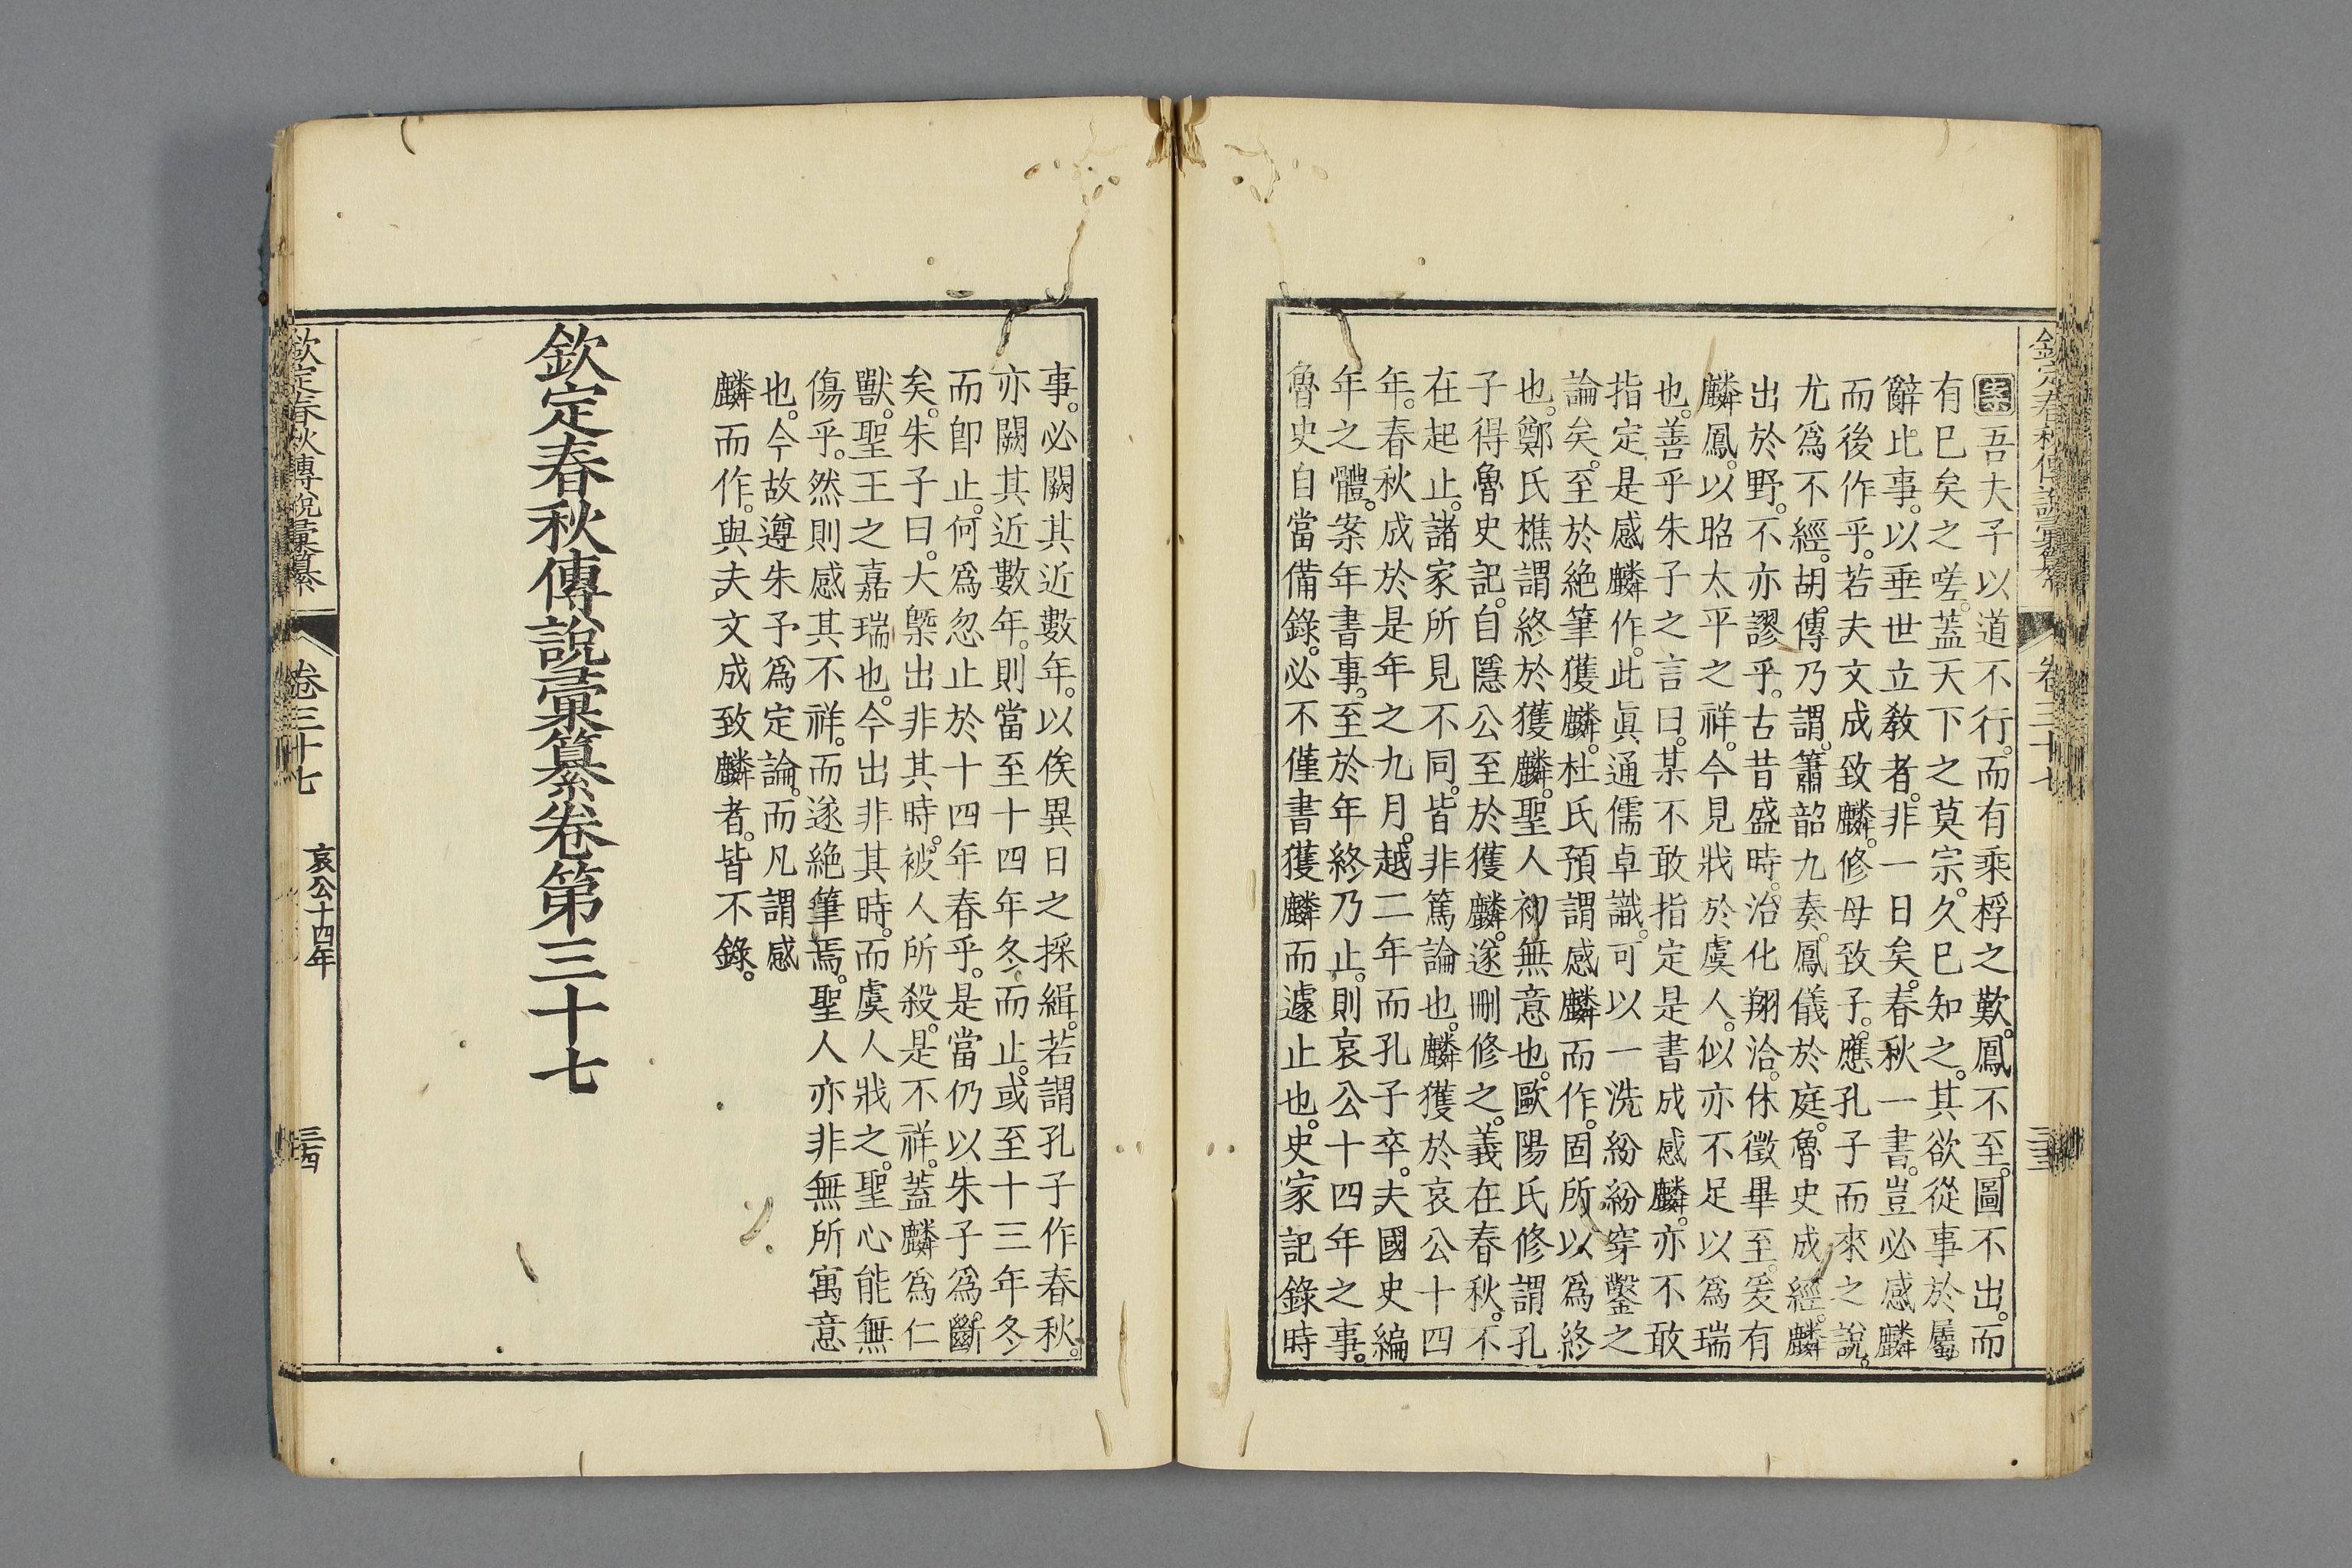 欽定春秋傳說彙纂
卷三十七
三十三
案吾夫子以道不行。而有乘桴之歎。鳳不至。圖不出。而
有已矣之嗟。蓋天下之莫宗。久已知之。其欲從事於屬
辭。比事。以垂世立教者。非一日矣。春秋一書。豈必感麟
而後作乎。若夫文成致麟。修母致子。應孔子而來之說。
尤爲不經。胡傳乃謂。簫韶九奏。鳳儀於庭。魯史成經。麟
出於野。不亦謬乎。古昔盛時。治化翔洽。休徵畢至。爰有
麟鳳。以昭太平之祥。今見戕於虞人。似亦不足以爲瑞
也。善乎朱子之言曰。某不敢指定是書成感麟。亦不敢
指定是感麟作。此眞通儒卓識。可以一洗紛紛穿鑿之
論矣。至於絶筆獲麟。杜氏預謂感麟而作。固所以爲終
也。鄭氏樵謂終於獲麟。聖人初無意也。歐陽氏修謂孔
子得魯史記。自隱公至於獲麟。遂刪修之。義在春秋。不
在起止。諸家所見不同。皆非篤論也。麟獲於哀公十四
年。春秋成於是年之九月。越二年而孔子卒。夫國史編
年之體。案年書事。至於年終乃止。則哀公十四年之事。
魯史自當備錄。必不僅書獲麟而遽止也。史家記錄時
事。必闕其近數年。以俟異日之採緝。若謂孔子作春秋。
亦闕其近數年。則當至十四年冬而止。或至十三年冬
而卽止。何爲忽止於十四年春乎。是當仍以朱子爲斷
矣。朱子曰。大槩出非其時。被人所殺。是不祥。蓋麟爲仁
獸。聖王之嘉瑞也。今出非其時。而虞人戕之。聖心能無
傷乎。然則感其不祥。而遂絶筆焉。聖人亦非無所寓意
也。今故遵朱子爲定論。而凡謂感
麟而作。與夫文成致麟者。皆不錄。
欽定春秋傳說彙纂卷第三十七
欽定春秋傳說彙纂
卷三十七
哀公十四年
三十四